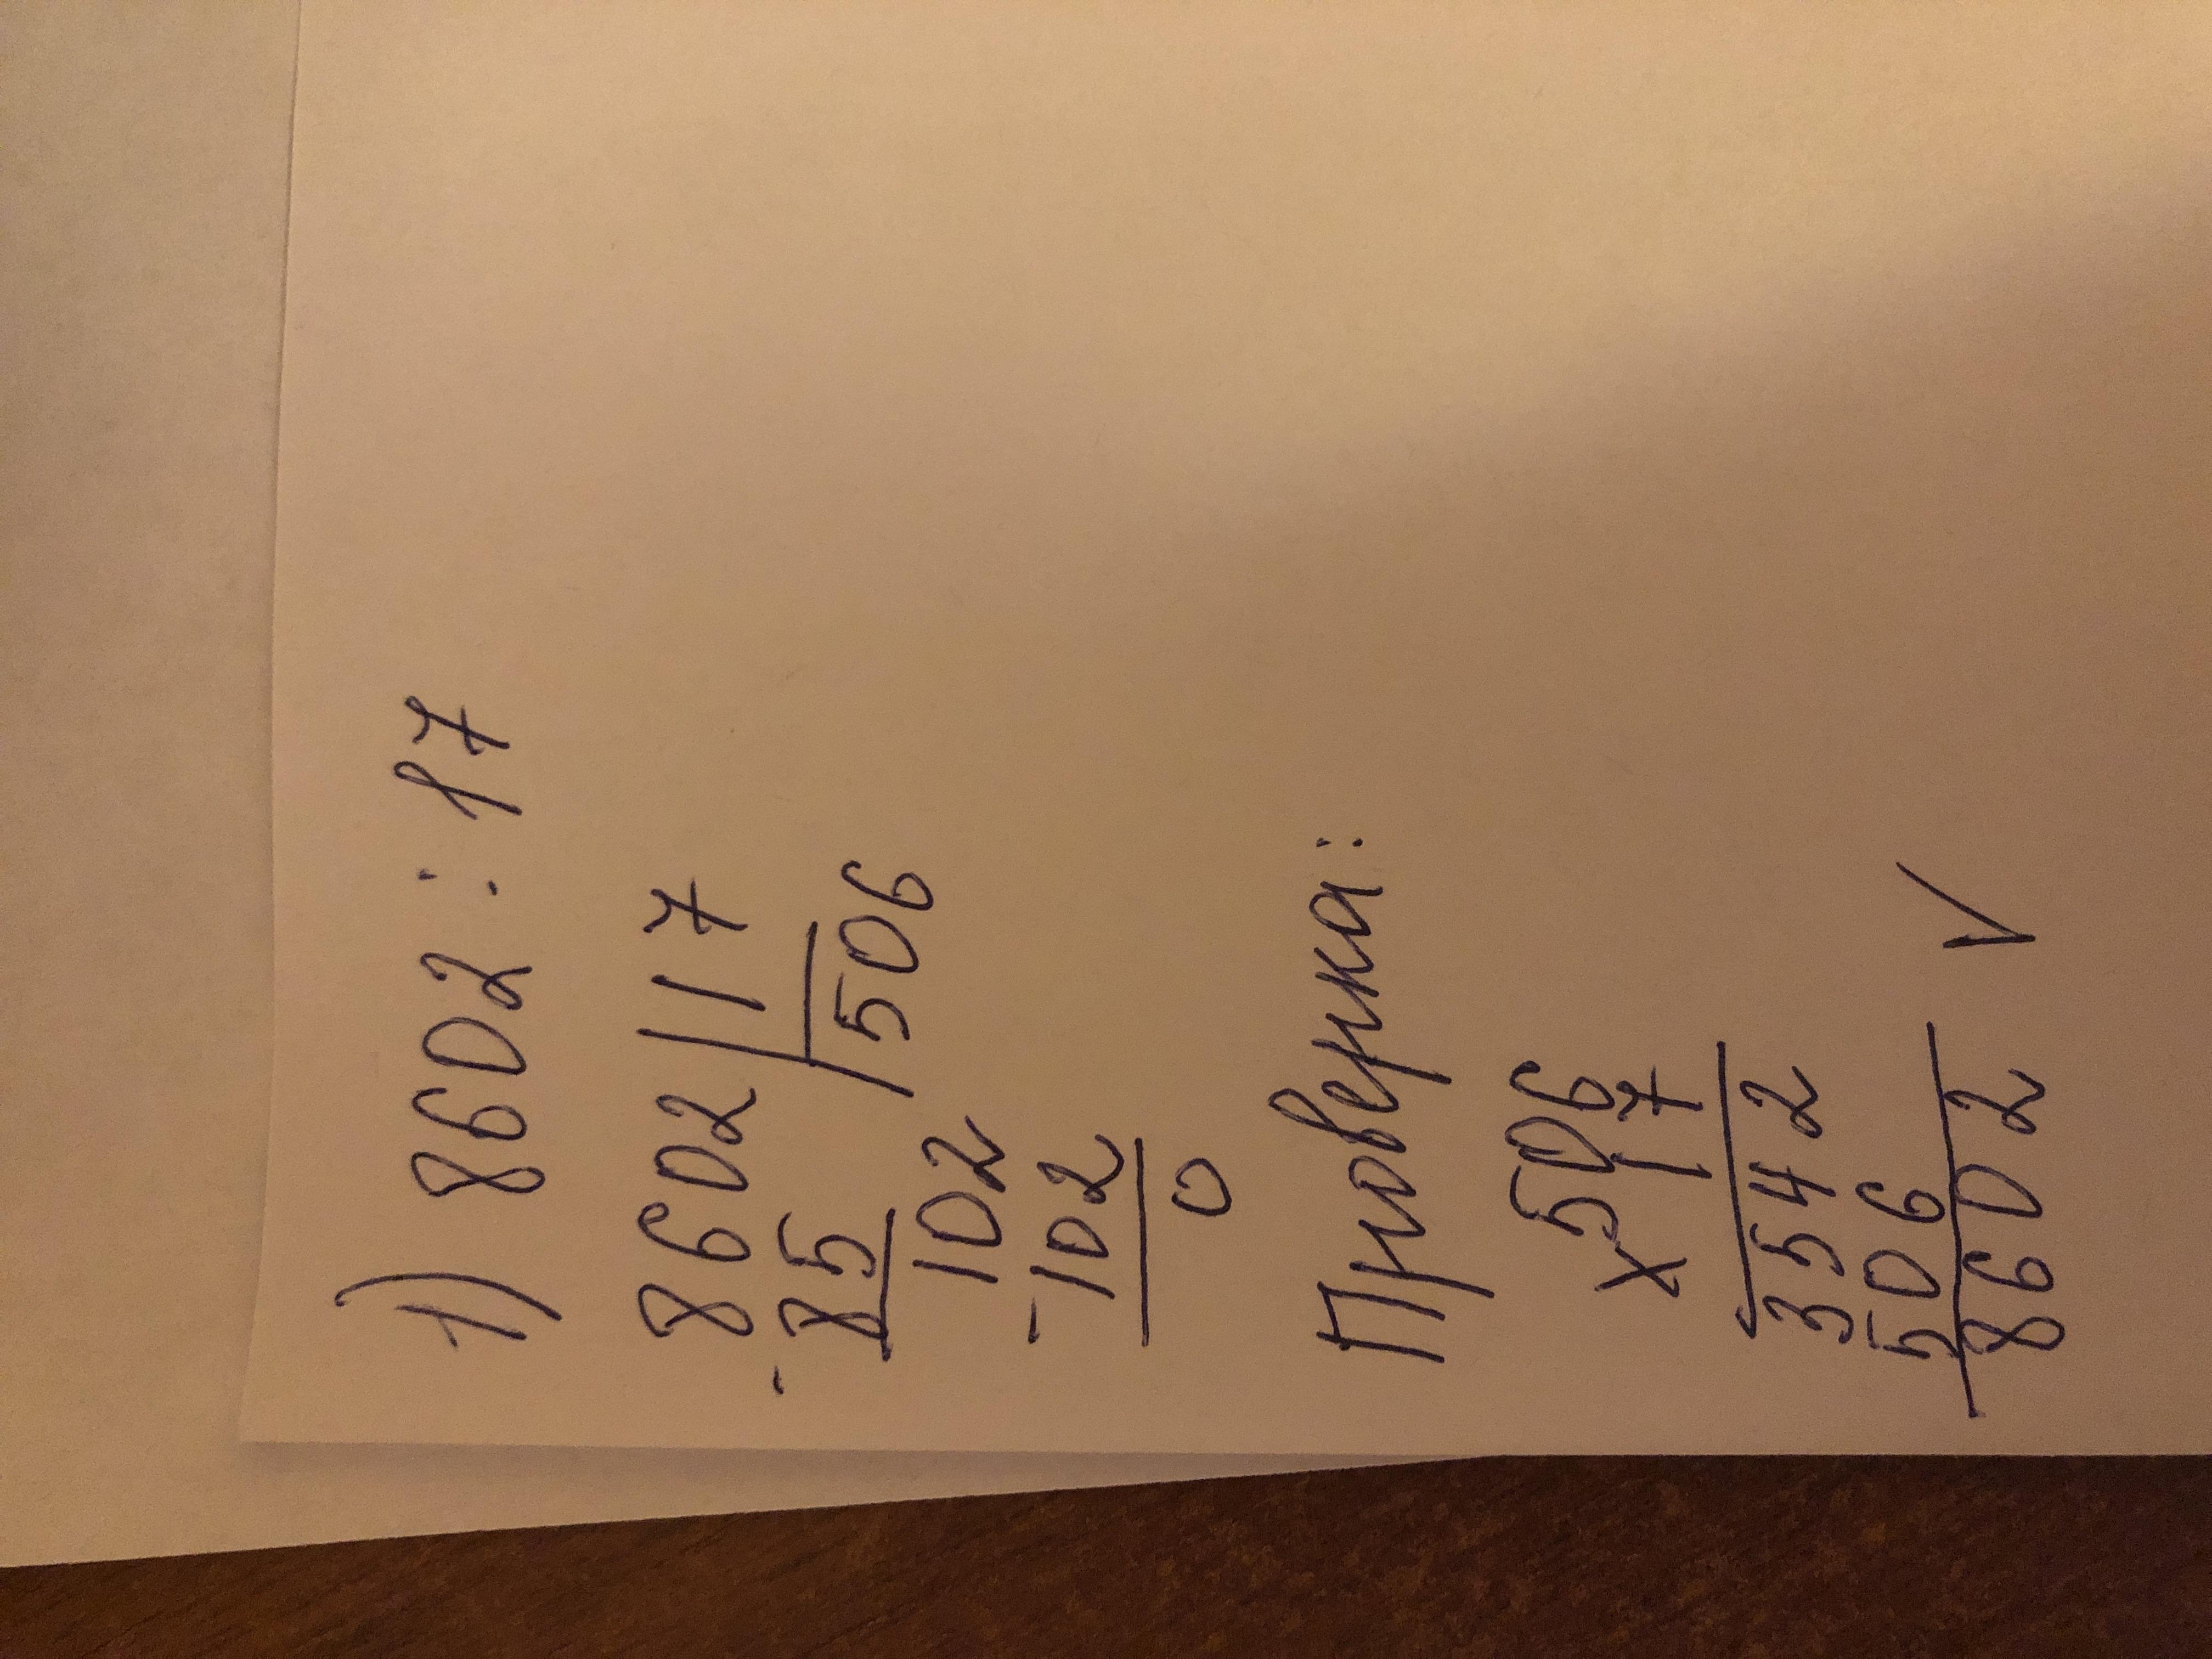 1) 8602 : 17
8602 | 17
- 85 | 506
102
- 102
0
Проверка:
x 506
17
3542
506
8602 V